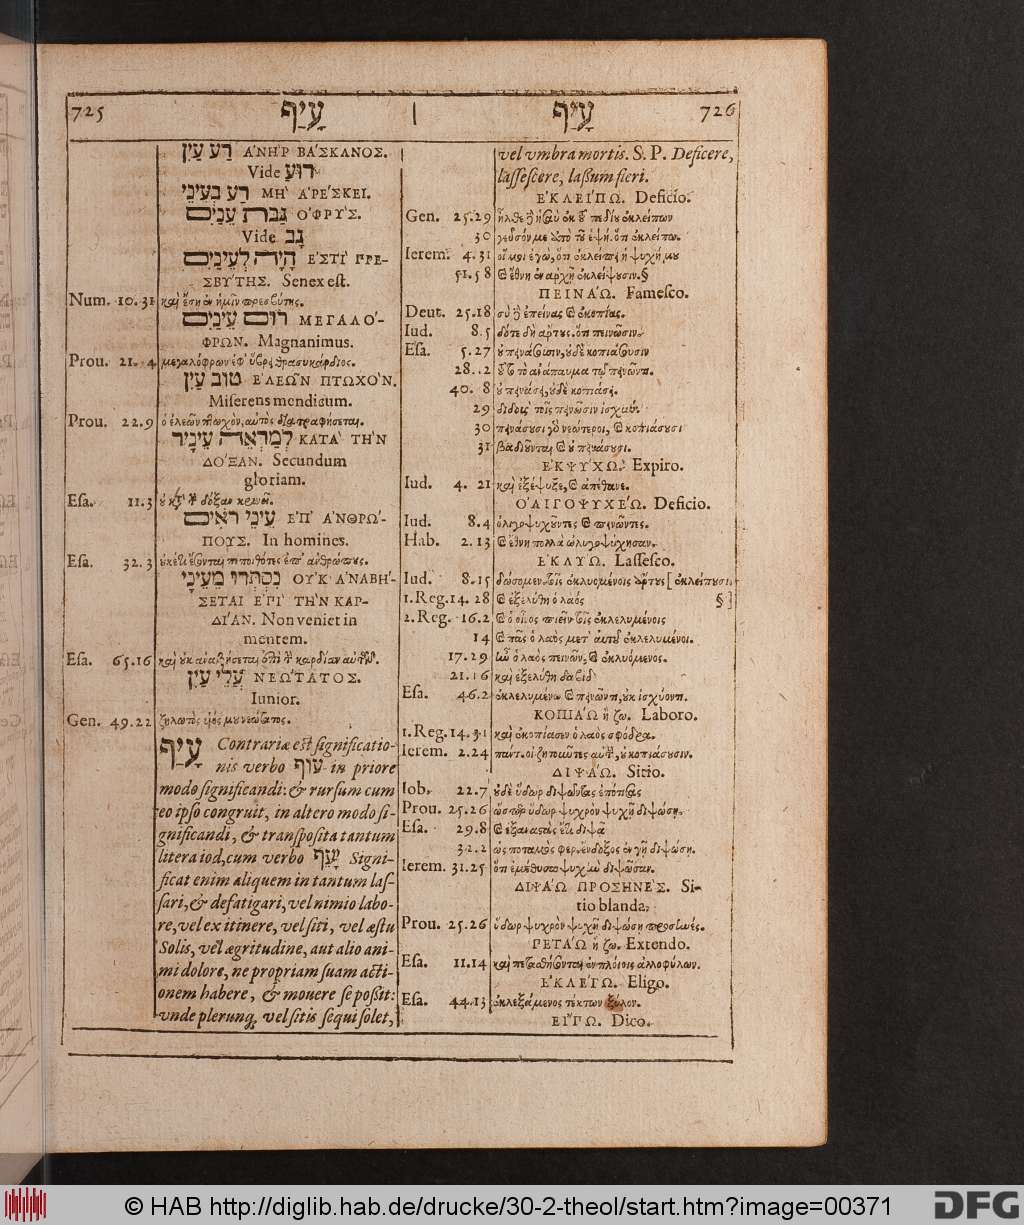 725 עָיֵף | עָיֵף 726
רַע עַיִן ΑΝῊΡ ΒΆΣΚΑΝΟΣ.
Vide רוּעַ
רַע בְּעֵינֵי ΜῊ ΑΡΈΣΚΕΙ.
גַּבֹּת עֵנַיִם ΟΦΡΎΣ.
Vide גָּב
הָיָה לְעֵינַיִם ΕΣΤῚ ΠΡΕ-
ΣΒΎΤΗΣ. Senex eſt.
Num. 10.31 καὶ ἔσῃ ἐν ἡμῖν πρεσβύτης.
רוּם עֵינַיִם ΜΕΓΑΛΌ-
ΦΡΩΝ. Magnanimus.
Prou. 21.4 μεγαλόφρων ἐφ' ὕβρει θρασυκάρδιος.
טוֹב עַיִן ΕΛΕΩ͂Ν ΠΤΩΧΌΝ.
Miſerens mendicum.
Prou. 22.9 ὁ ἐλεῶν πτωχὸν, αὐτὸς διατραφήσεται.
לְמַרְאֵה עֵינָיו ΚΑΤᾺ ΤῊΝ
ΔΌΞΑΝ. Secundum
gloriam.
Eſa. 11.3 οὐ κατὰ τὴν δόξαν κρινεῖ.
עֵינֵי רֹאִים ΕΠ' ΑΝΘΡΏ-
ΠΟΥΣ. In homines.
Eſa. 32.3 οὐκέτι ἔσονται πεποιθότες ἐπ' ἀνθρώποις.
נִסְתְּרוּ מֵעֵינָי ΟΥΚ ΑΝΑΒΉ-
ΣΕΤΑΙ ΕΠῚ ΤῊΝ ΚΑΡ-
ΔΊΑΝ. Non veniet in
mentem.
Eſa. 65.16 καὶ οὐκ ἀναβήσεται ἐπὶ τὴν καρδίαν αὐτῶν.
עֲלֵי עַיִן ΝΕΏΤΑΤΟΣ.
Iunior.
Gen. 49.22 ζηλωτὸς υἱός μου νεώτατος.
עָיֵף Contrariæ eſt ſignificatio-
nis verbo עוּף in priore
modo ſignificandi: & rurſum cum
eo ipſo congruit, in altero modo ſi-
gnificandi, & tranſpoſita tantum
litera iod, cum verbo יָעֵף Signi-
ficat enim aliquem in tantum laſ-
ſari, & defatigari, vel nimio labo-
re, vel ex itinere, vel ſiti, vel æſtu
Solis, vel ægritudine, aut alio ani-
mi dolore, ne propriam ſuam acti-
onem habere, & mouere ſe poſſit:
vnde plerunq, vel ſitis ſequi ſolet,
vel vmbra mortis. S. P. Deficere,
laſſeſcere, laſſum fieri.
ΕΚΛΕΊΠΩ. Deficio.
Gen. 25.29 ἦλθε δὲ ἠσαῦ ἐκ τοῦ πεδίου ἐκλείπων
30 γεῦσόν με ἀπὸ τοῦ ἑψή. ὅτι ἐκλείπω.
Ierem. 4.31 οἴμοι ἐγὼ, ὅτι ἐκλείπει ἡ ψυχή μου
51.58 καὶ ἔθνη ἐν ἀρχῇ ἐκλείψουσιν. §
ΠΕΙΝΆΩ. Fameſco.
Deut. 25.18 σὺ δὲ ἐπείνας καὶ ἐκοπίας.
Iud. 8.5 δότε δὴ ἄρτους, ὅτι πεινῶσιν.
Eſa. 5.27 οὐ πεινάσουσιν, οὐδὲ κοπιάσουσιν
28.12 τοῦτο τὸ ἀνάπαυμα τῷ πεινῶντι.
40.8 οὐ πεινάσει, οὐδὲ κοπιάσει.
29 διδοὺς τοῖς πεινῶσιν ἰσχύν.
30 πεινάσουσι γὸ νεώτεροι, καὶ κοπιάσουσι
31 βαδιοῦνται καὶ οὐ πεινάσουσι.
ΕΚΨΎΧΩ. Expiro.
Iud. 4.21 καὶ ἐξέψυξε, καὶ ἀπέθανε.
ΟΛΙΓΟΨΥΧΈΩ. Deficio.
Iud. 8.4 ὀλιγοψυχοῦντες καὶ πεινῶντες.
Hab. 2.13 καὶ ἔθνη πολλὰ ὠλιγοψύχησαν.
ΕΚΛΎΩ. Laſſeſco.
Iud. 8.15 δώσομεν τοῖς ἐκλυομένοις ἄρτους [ἐκλείπουσι
1. Reg. 14.28 καὶ ἐξελύθη ὁ λαός §]
2. Reg. 16.2 καὶ ὁ οἶνος πιεῖν τοῖς ἐκλελυμένοις
14 καὶ πᾶς ὁ λαὸς μετ' αὐτοῦ ἐκλελυμένοι.
17.29 ὁ λαὸς πεινῶν, καὶ ἐκλυόμενος.
21.16 καὶ ἐξελύθη δαβίδ
Eſa. 46.2 ἐκλελυμένῳ καὶ πεινῶντι, οὐκ ἰσχύοντι.
ΚΟΠΙΆΩ ἢ ζω. Laboro.
1. Reg. 14.31 καὶ ἐκοπίασεν ὁ λαὸς σφόδρα.
Ierem. 2.24 πάντ. οἱ ζητοῦντες αὐτὴν, οὐ κοπιάσουσιν.
ΔΙΨΆΩ. Sitio.
Iob. 22.7 οὐδὲ ὕδωρ διψῶντας ἐπότισας
Prou. 25.26 ὥσπερ ὕδωρ ψυχρὸν ψυχῇ διψώσῃ.
Eſa. 29.8 καὶ ἐξαναστὰς ἔτι διψᾷ
32.2 ὡς ποταμὸς φερ. ἔνδοξος ἐν γῇ διψώσῃ.
Ierem. 31.25 ὅτι ἐμέθυσα ψυχὴν διψῶσαν.
ΔΙΨΆΩ ΠΡΟΣΗΝΈΣ. Si-
tio blanda.
Prou. 25.26 ὕδωρ ψυχρὸν ψυχῇ διψώσῃ προσηνές.
ΠΕΤΆΩ ἢ ζω. Extendo.
Eſa. 11.14 καὶ πετασθήσονται ἐν πλοίοις ἀλλοφύλων.
ΕΚΛΈΓΩ. Eligo.
Eſa. 44.13 ἐκλεξάμενος τέκτων ξύλον.
ΕΊΠΩ. Dico.
© HAB http://diglib.hab.de/drucke/30-2-theol/start.htm?image=00371
DFG